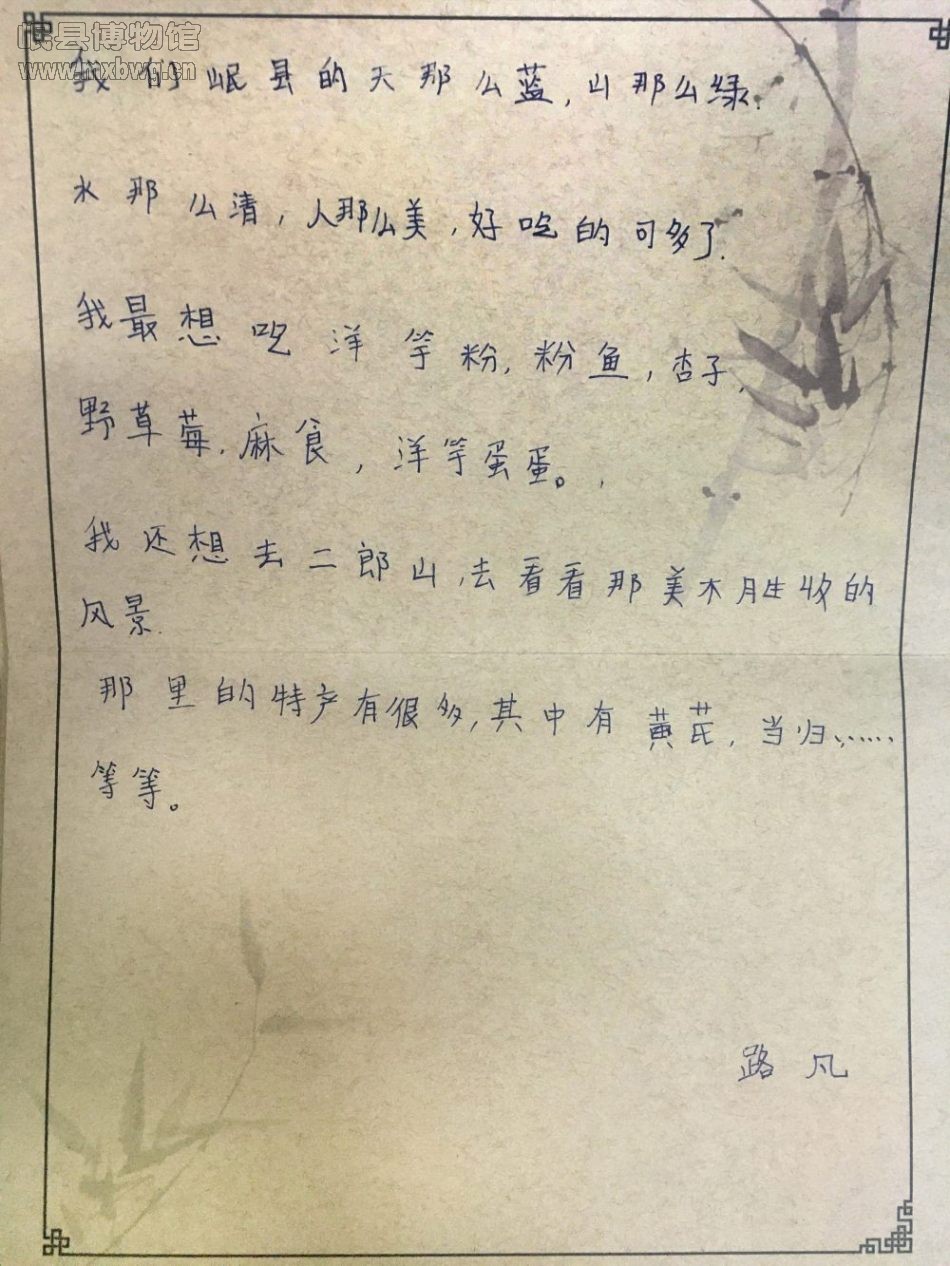 岷县博物馆
www.mxbwg.cn
我们岷县的天那么蓝，山那么绿.
水那么清，人那么美，好吃的可多了.
我最想吃洋芋粉，粉鱼，杏子，
野草莓，麻食，洋芋蛋蛋。，
我还想去二郎山，去看看那美木胜收的
风景.
那里的特产有很多，其中有黄芪，当归、……
等等。
路凡